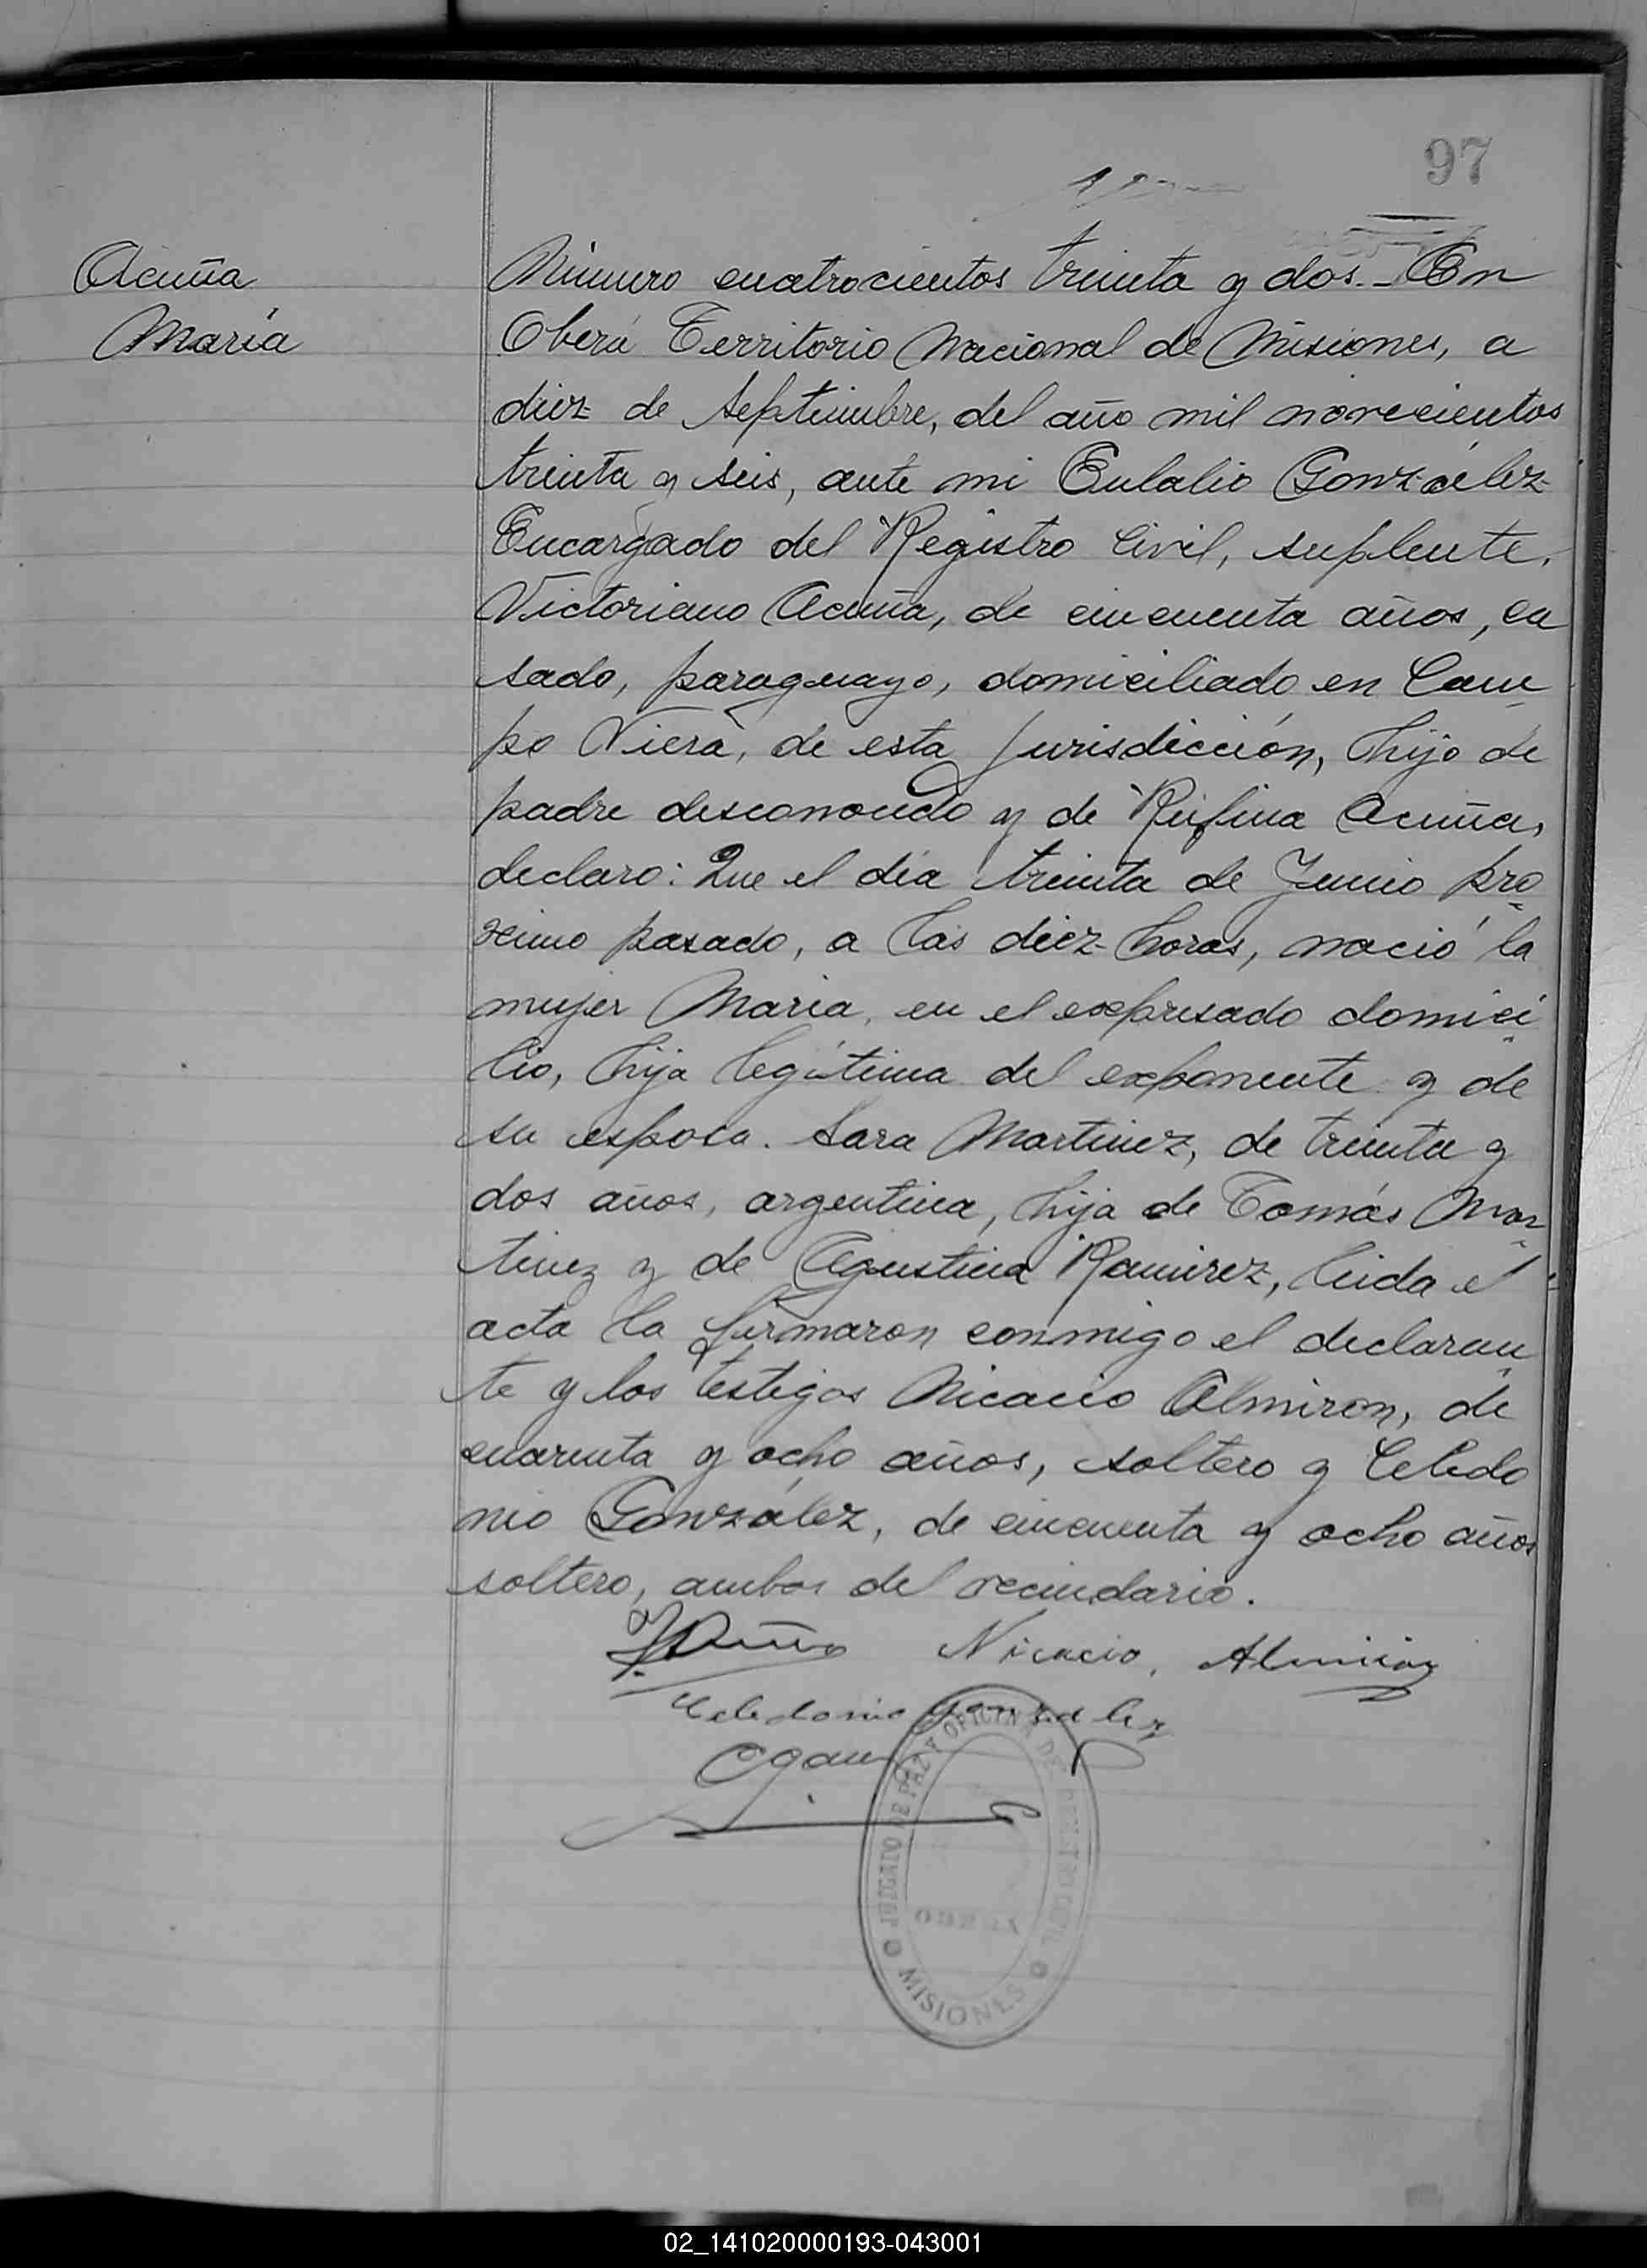 97
Acuña
María
Número cuatrocientos treinta y dos. - En
Oberá Territorio Nacional de Misiones, a
diez de Septiembre, del año mil novecientos
treinta y seis, ante mi Eulalio González
Encargado del Registro Civil, suplente,
Victoriano Acuña, de cincuenta años, ca
sado, paraguayo, domiciliado en Cam
po Viera, de esta jurisdicción, hijo de
padre desconocido y de Rufina Acuña,
declaro: Que el día treinta de Junio pro
ximo pasado, a las diez horas, nació la
mujer María, en el expresado domici
lio, hija legítima del exponente y de
su esposa. Sara Martinez, de treinta y
dos años, argentina, hija de Tomás Mar
tinez y de Agustina Ramirez, leida el
acta la firmaron conmigo el declaran
te y los testigos Nicacio Almiron, de
cuarenta y ocho años, soltero y Celedo
nio González, de cincuenta y ocho años
soltero, ambos del vecindario.
Nicacio, Almiron
Celedonio gonzalez
JUZGADO DE PAZ Y OFICINA DEL REGISTRO CIVIL
OBERA
MISIONES
02_141020000193-043001